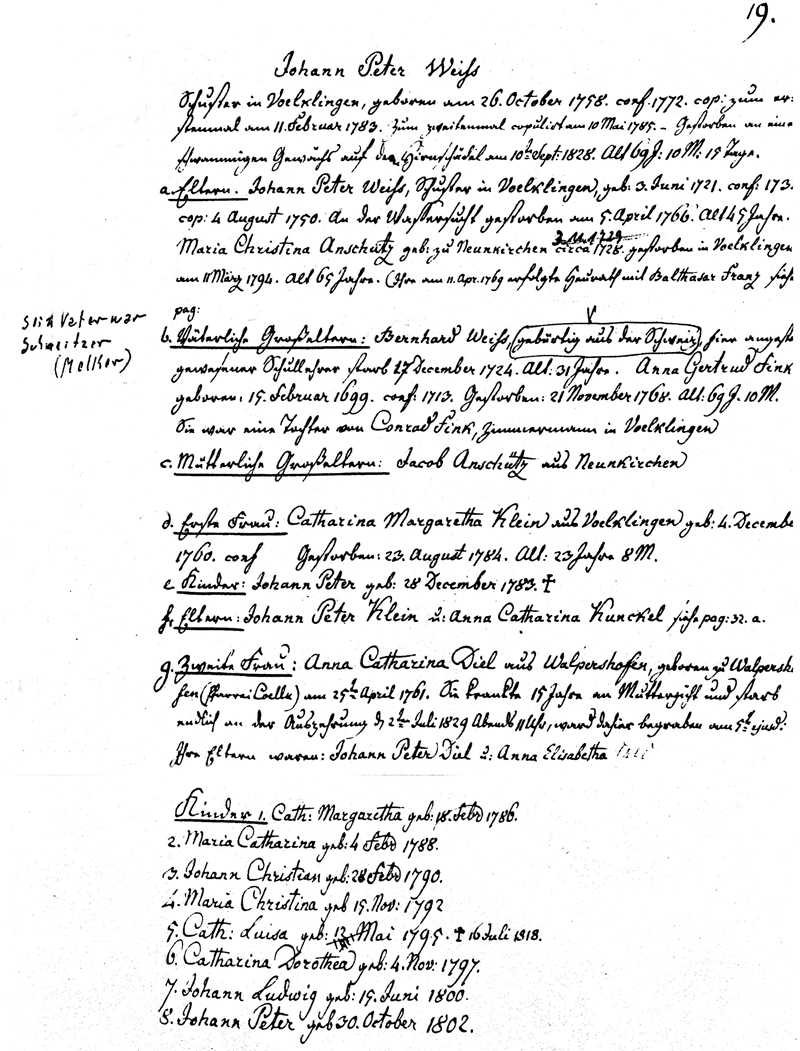 19.
Johann Peter Weiss
Schuster in Voelklingen, geboren am 26. October 1758. conf. 1772. cop: zum er-
stenmal am 11. Februar 1783. Zum zweitenmal copulirt am 10 Mai 1785. – Gestorben an eine
schwammigen Gewächs auf dem Hirnschädel am 10ten Sept: 1828. Alt 69 J: 10 M: 15 Tage.
a. Eltern. Johann Peter Weiss, Schuster in Voelklingen, geb: 3. Juni 1721. conf: 173.
cop: 4 August 1750. An der Wassersucht gestorben am 5. April 1766. Alt 45 Jahre.
Maria Christina Anschütz geb: zu Neunkirchen circa 1728. gestorben in Voelklingen
am 11 März 1794. Alt 65 Jahre. (Ihre am 11. Apr. 1769 erfolgte Heurath mit Balthasar Franz siehe
pag:
Schweitzer
(Melker)
b. Väterliche Großeltern: Bernhard Weiss, (gebürtig aus der Schweiz), hier angest
gewesener Schullehrer starb 17 December 1724. Alt: 31 Jahre. Anna Gertrud Fink
geboren: 15. Februar 1699. conf: 1713. Gestorben: 21 November 1768. Alt: 69 J. 10 M.
Sie war eine Tochter von Conrad Fink, Zimmermann in Voelklingen
c. Mütterliche Großeltern: Jacob Anschütz aus Neunkirchen
d. Erste Frau: Catharina Margaretha Klein aus Voelklingen geb: 4. Decembe
1760. conf Gestorben: 23. August 1784. Alt: 23 Jahre 8 M.
e Kinder: Johann Peter geb: 28 December 1783. †
f. Eltern: Johann Peter Klein u: Anna Catharina Kunckel siehe pag: 32. a.
g. Zweite Frau: Anna Catharina Diel aus Walpershofen, geboren zu Walpersh
fen (Pfarrei Coelln) am 25ten April 1761. Sie krankte 15 Jahre an Muttergicht und starb
endlich an der Auszehrung d 2ten Juli 1829 Abends 11 Uhr, ward dahier begraben am 5t ejusd:
Ihre Eltern waren: Johann Peter Diel u: Anna Elisabetha
Kinder 1. Cath: Margaretha geb: 18. Febr 1786.
2. Maria Catharina geb: 4 Febr 1788.
3. Johann Christian geb: 28 Febr 1790.
4. Maria Christina geb 15. Nov: 1792
5. Cath: Luisa geb: 12 Mai 1795. † 16 Juli 1818.
6. Catharina Dorothea geb: 4. Nov: 1797.
7. Johann Ludwig geb: 15. Juni 1800.
8. Johann Peter geb 30. October 1802.